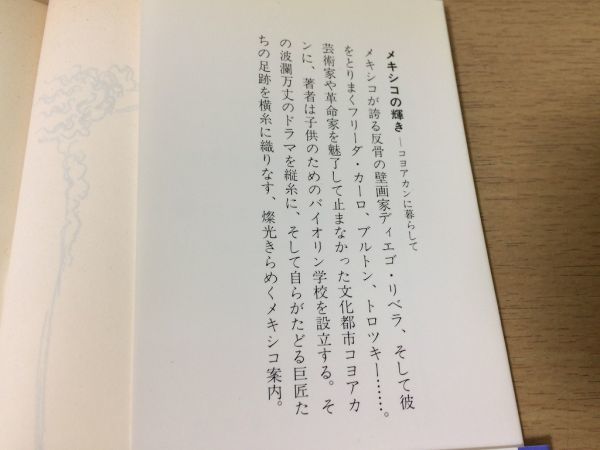 メキシコの輝き―コヨアカンに暮らして
メキシコが誇る反骨の壁画家ディエゴ・リベラ、そして彼
をとりまくフリーダ・カーロ、ブルトン、トロツキー……。
芸術家や革命家を魅了して止まなかった文化都市コヨアカ
ンに、著者は子供のためのバイオリン学校を設立する。そ
の波瀾万丈のドラマを縦糸に、そして自らがたどる巨匠た
ちの足跡を横糸に織りなす、燦光きらめくメキシコ案内。